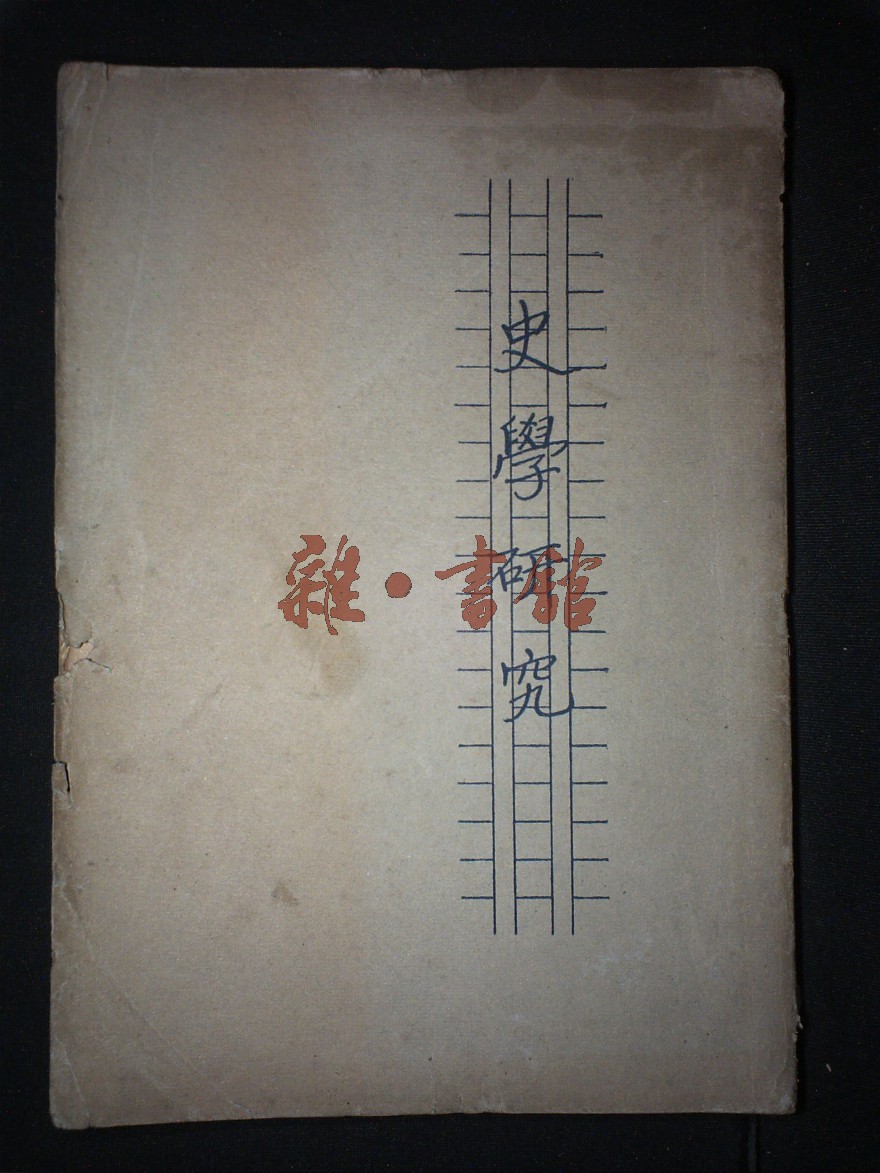 史學研究
雜·書館